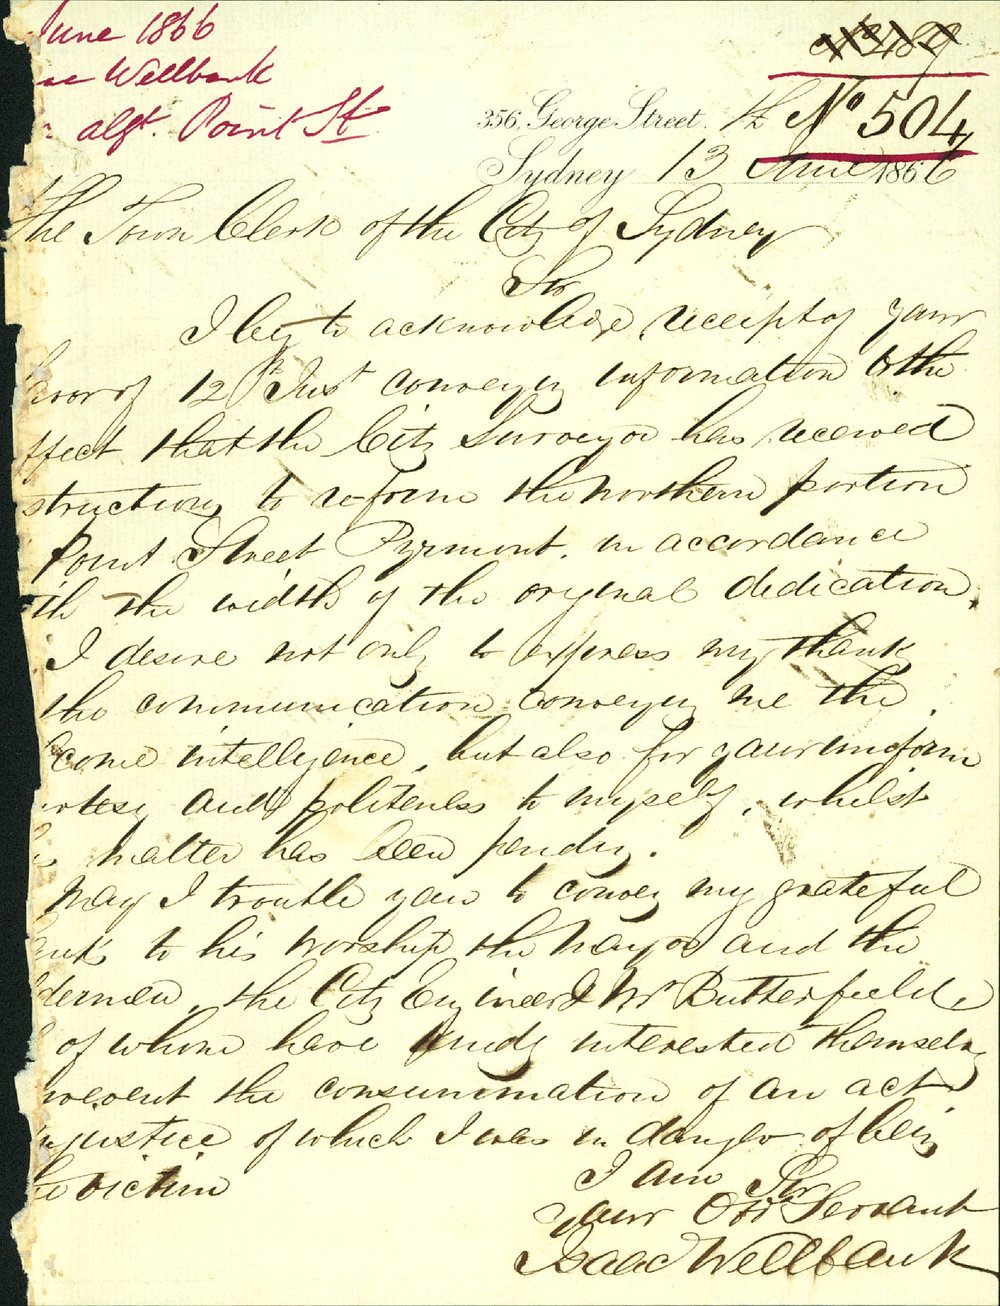 June 1866
ac Wellbank
algt. Point St
No 489
No 504
356, George Street.
Sydney 13 June 1866
The Town Clerk of the City of Sydney
Sir
I beg to acknowledge receipt of your
avor of 12th Inst conveying information to the
ffect that the City Surveyor has received
structions to re-form the northern portion
Point Street Pyrmont, in accordance
ith the width of the original dedication.
I desire not only to express my thanks
the communication conveying me the
come intelligence, but also for your uniform
urtesy and politeness to myself, whilst
is matter has been pending.
May I trouble you to convey my grateful
anks to his worship the Mayor and the
dermen, the City Engineer & Mr Butterfield
of whom have kindly interested themselves
prevent the consummation of an act
njustice of which I was in danger of being
he victim
I am Sir
Your Obt Servant
Isaac Wellbank